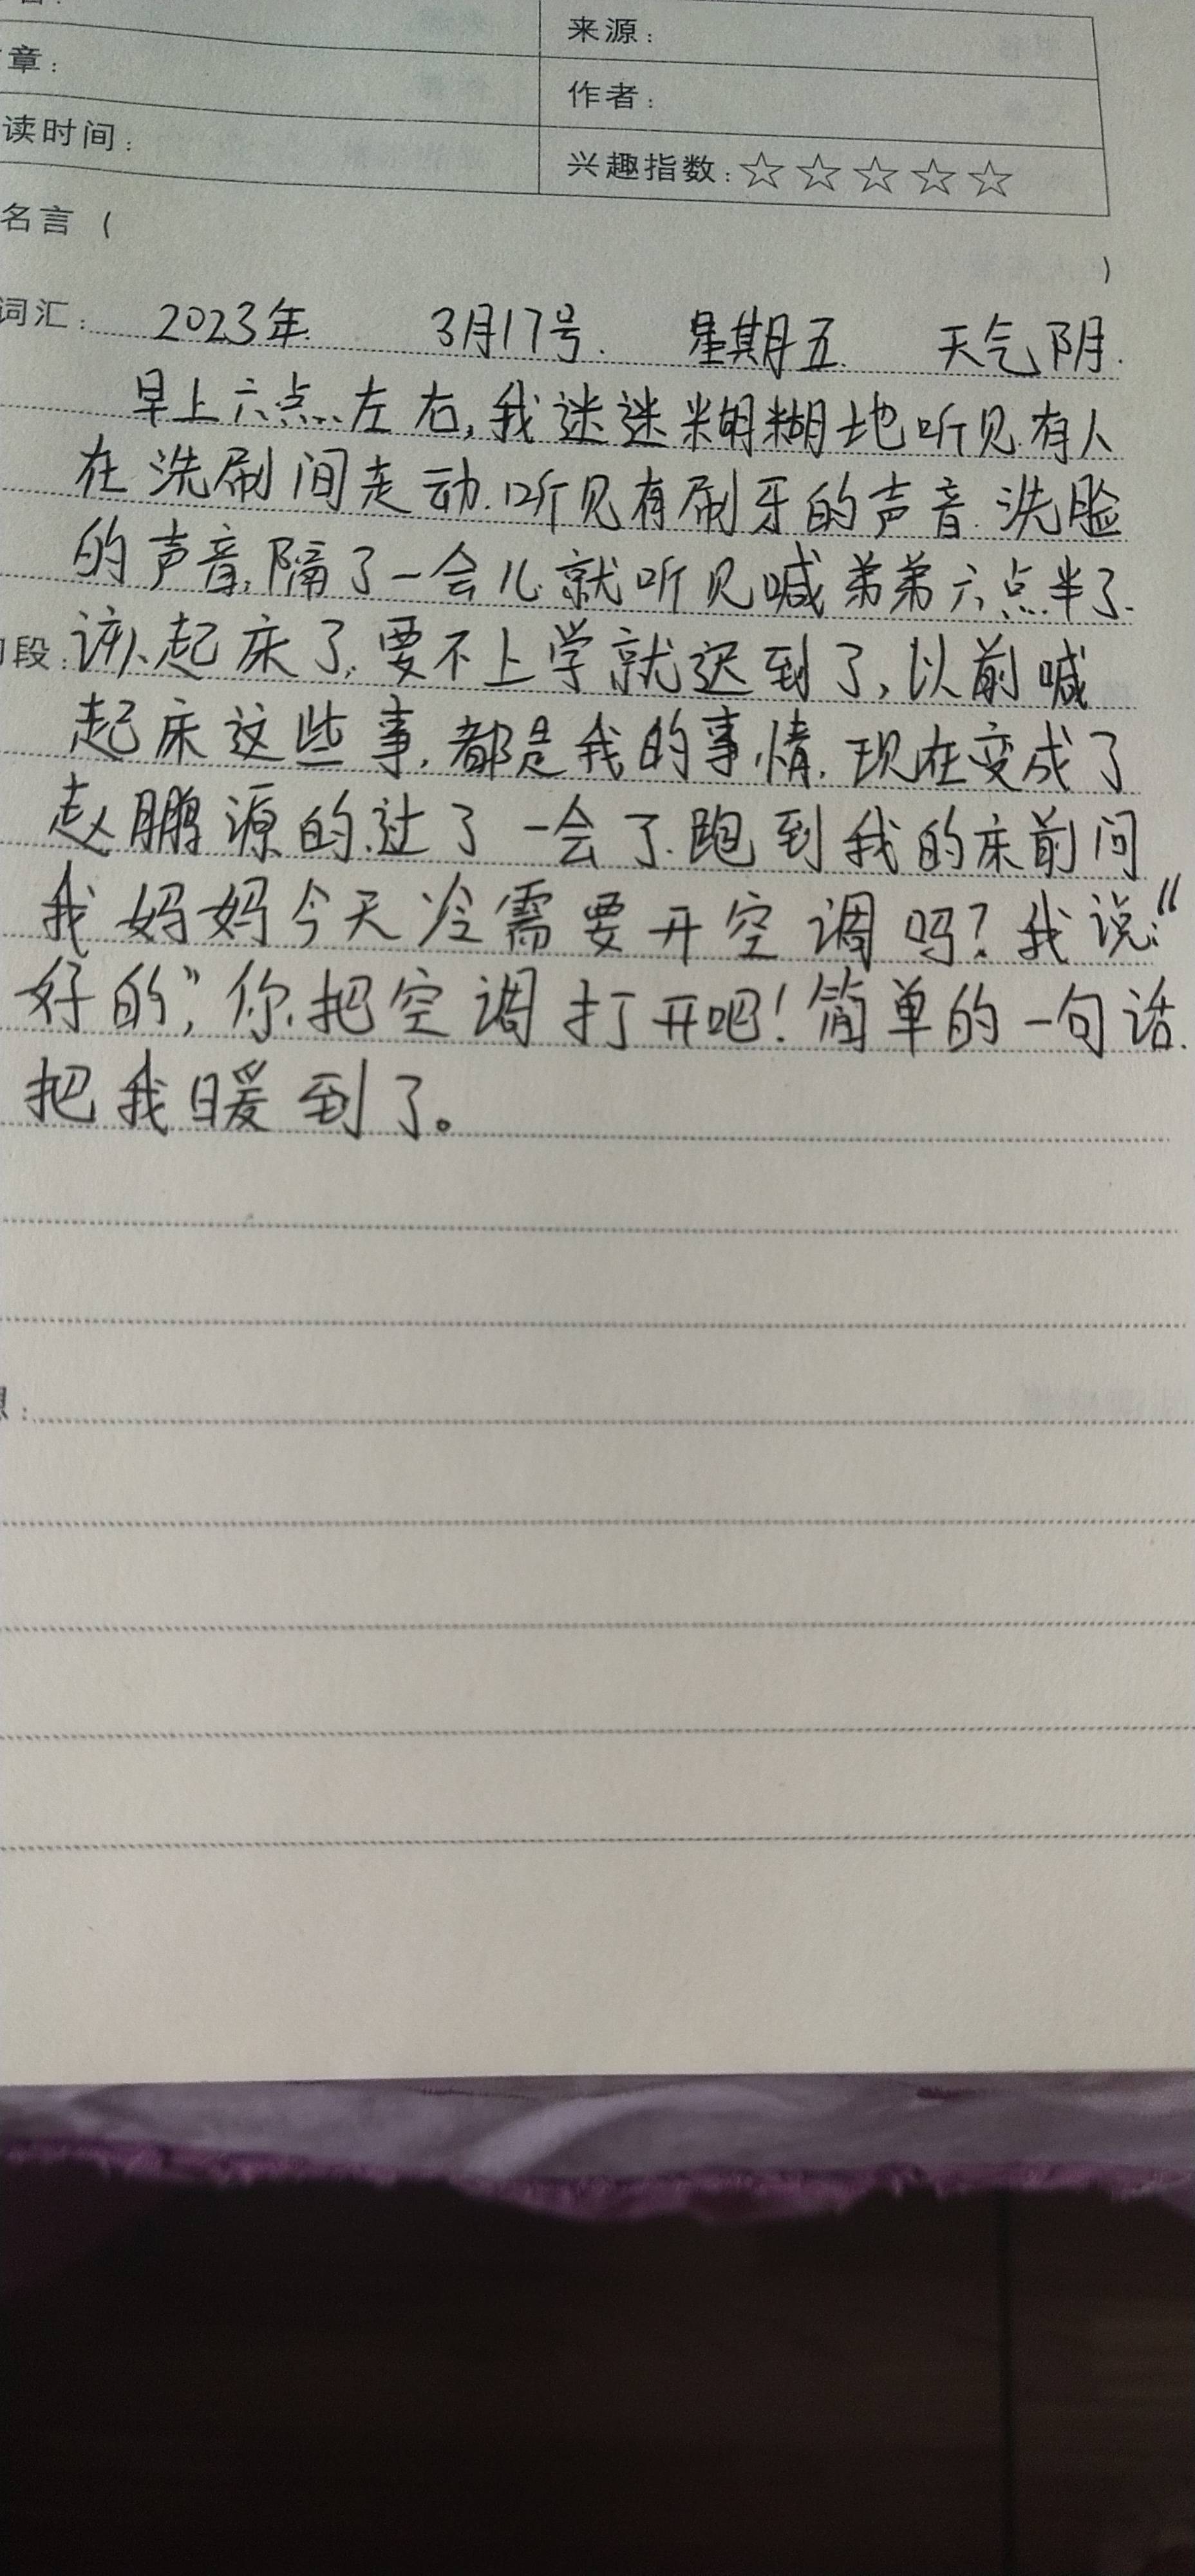 来源:
章:
作者:
读时间:
兴趣指数:☆☆☆☆☆
名言(
)
词汇: 2023年 3月17号. 星期五. 天气阴.
早上六点左右,我迷迷糊糊地听见有人
在洗刷间走动.听见有刷牙的声音.洗脸
的声音,隔了一会儿就听见喊弟弟六点半了.
段: 该起床了,要不上学就迟到了,以前喊
起床这些事,都是我的事情,现在变成了
赵鹏源的.过了一会了.跑到我的床前问
我妈妈今天冷需要开空调吗?我说:“
好的”,你把空调打开吧!简单的一句话.
把我暖到了。